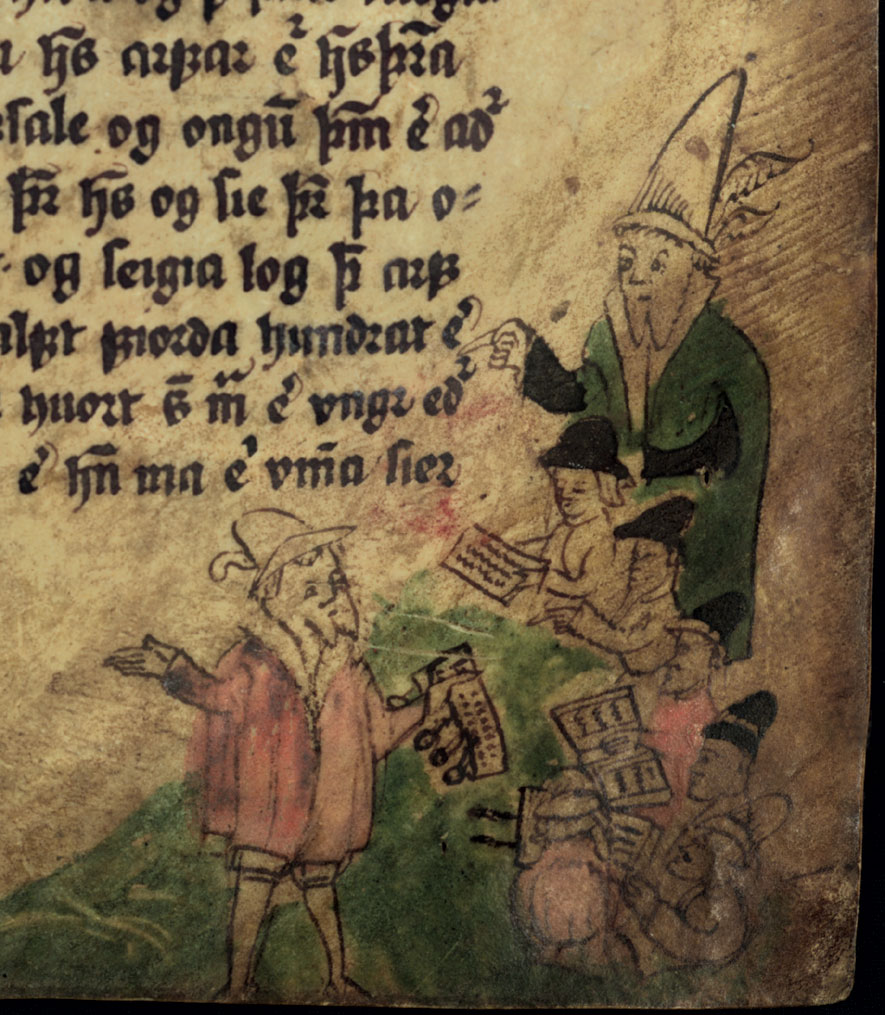 h̄s arfar e᷑ h̄s þr̄a
sale og ongū þm̄ e᷑ að᷑
þr̄ h̄s og sie þr̄ þa o=
og seigia log þr̄ arf
alft fiorda hundrat e᷑
huort s̄ m̄ e᷑ vngr eð᷑
e᷑ hn̄ ma e᷑ vm̄a sier